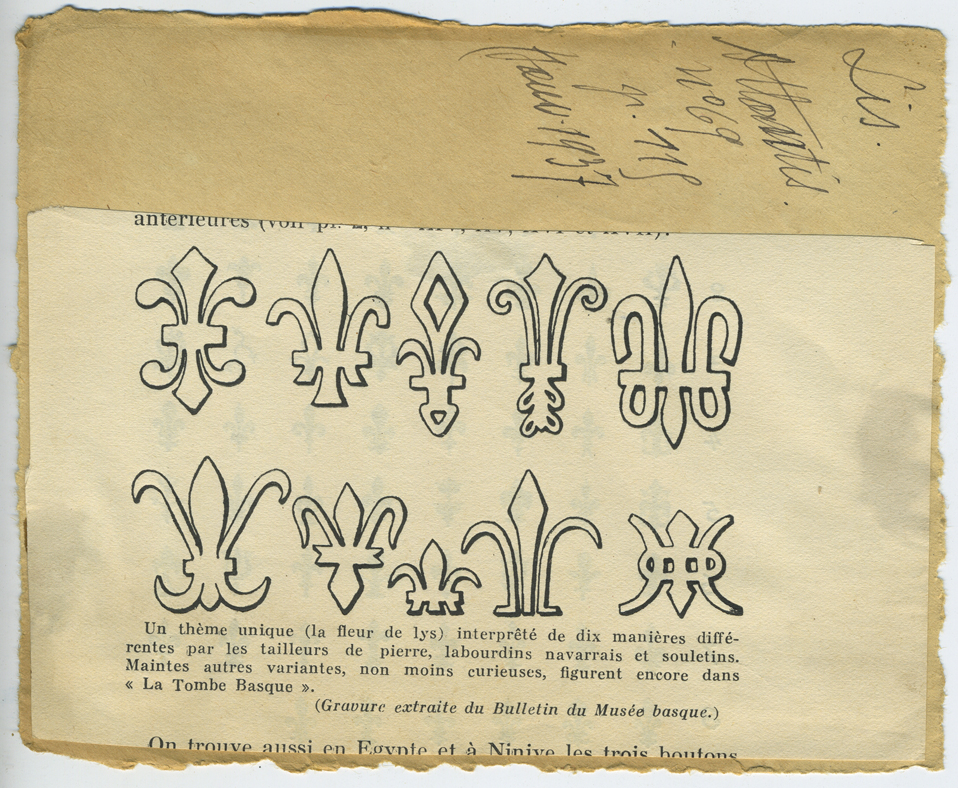 Lis.
Atlantis
n° 69
p. 115
Janv. 1937
antérieures (voir pl. 2, nos XIV, XV, XVI et XVII).
Un thème unique (la fleur de lys) interprêté de dix manières diffé-
rentes par les tailleurs de pierre, labourdins navarrais et souletins.
Maintes autres variantes, non moins curieuses, figurent encore dans
« La Tombe Basque ».
(Gravure extraite du Bulletin du Musée basque.)
On trouve aussi en Egypte et à Ninive les trois boutons